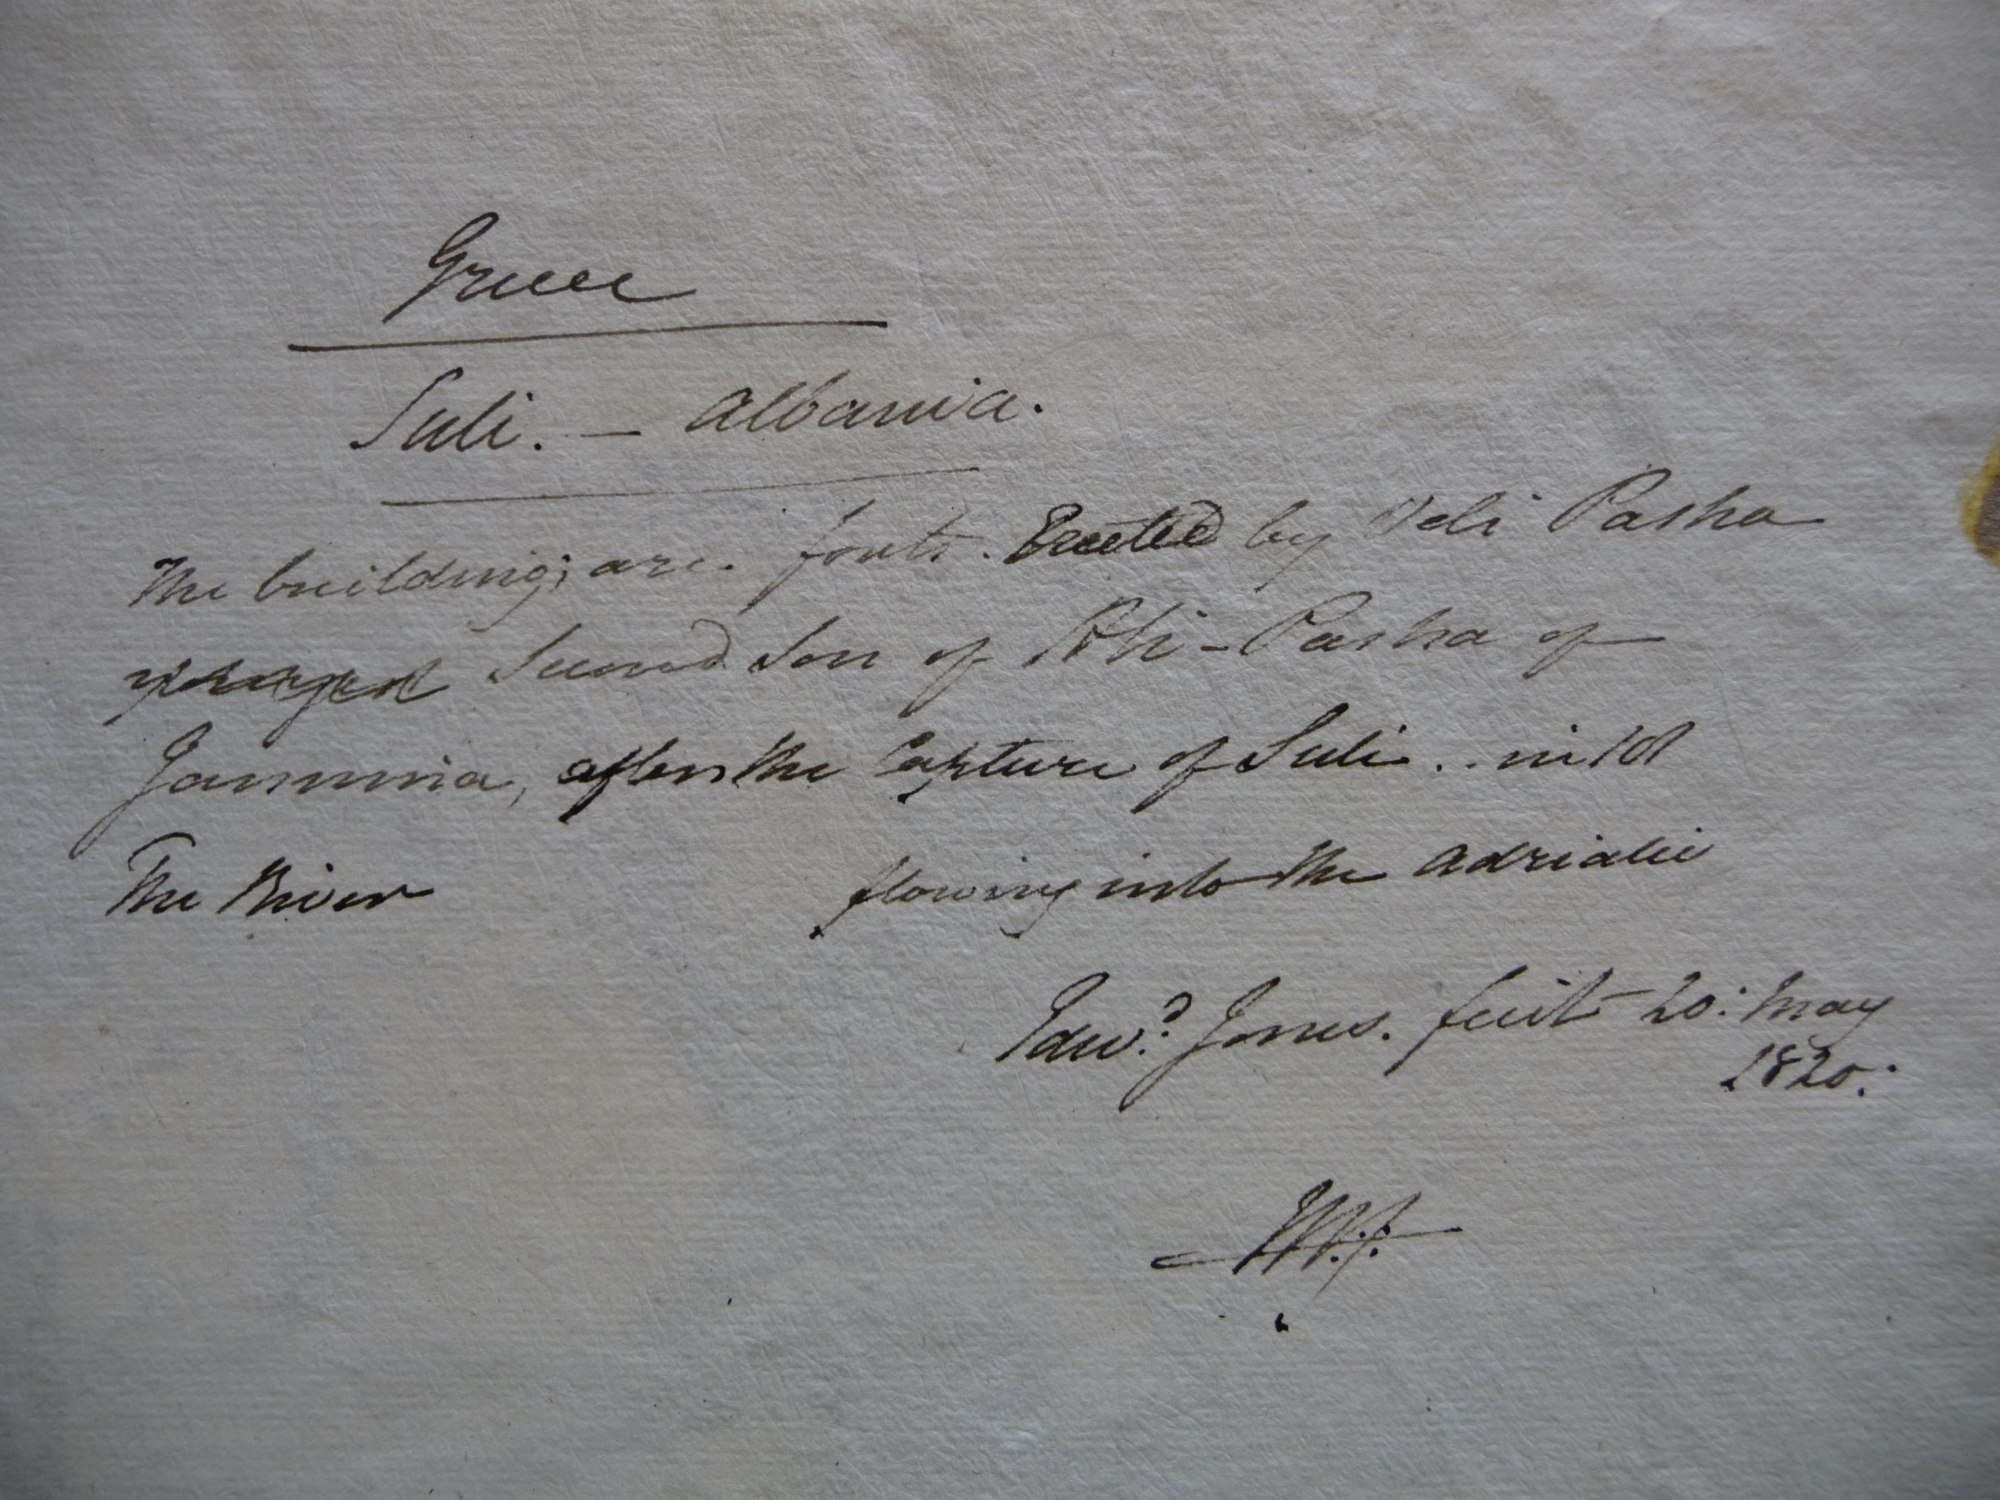 Greece
Suli. — Albania.
The buildings, are. forts. Erected by Veli Pasha
Second Son of Ali-Pasha of
Jannina, after the Capture of Suli .. in 18
The River flowing into the Adriatic
Edwd. Jones. fecit 20: May
1820: